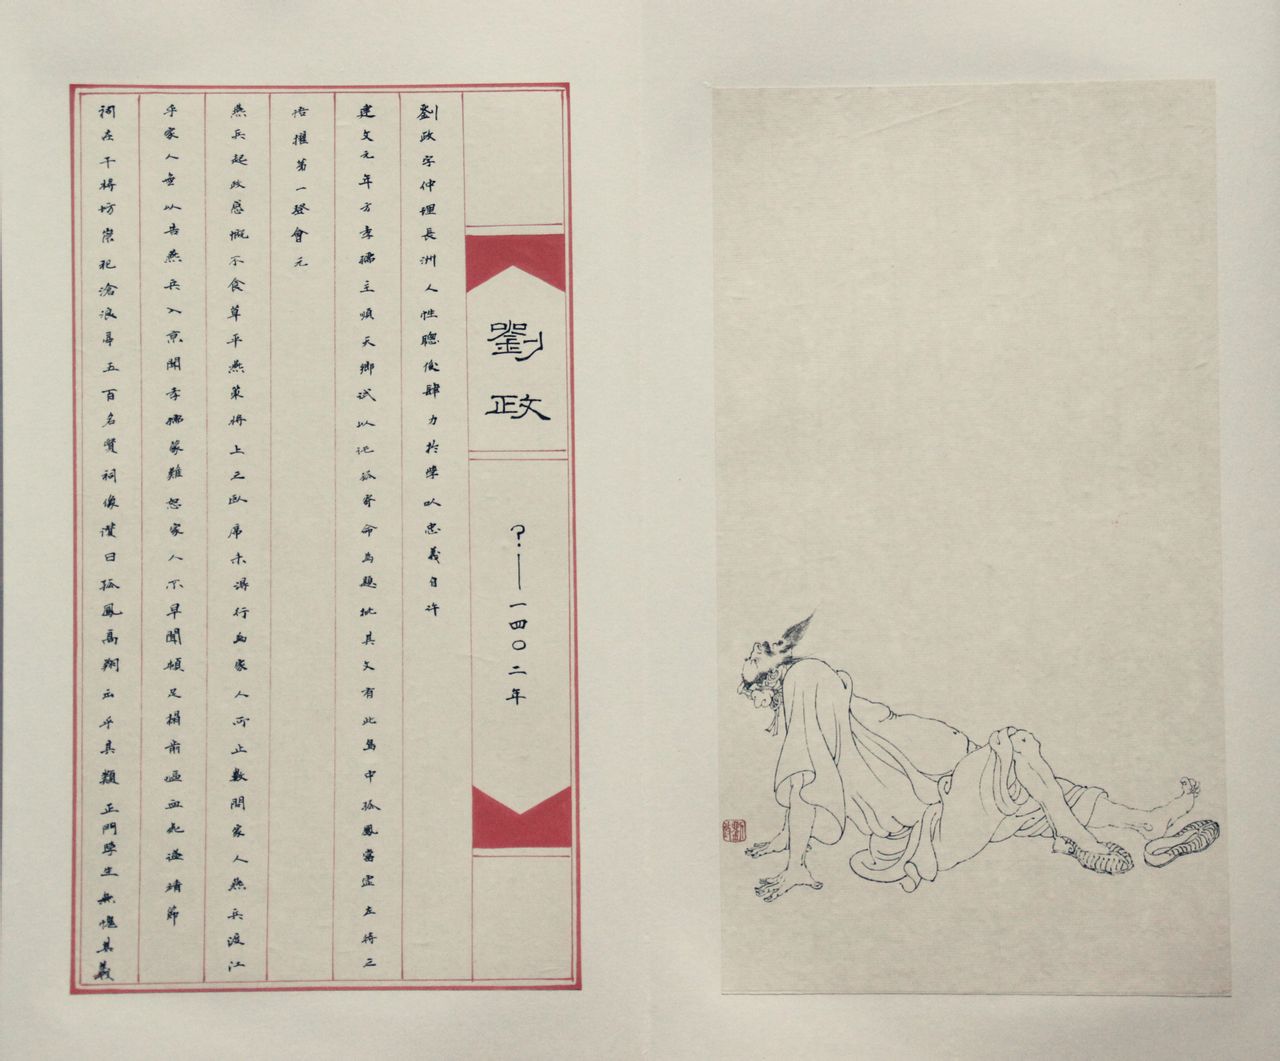 劉政
?——一四〇二年
劉政字仲理長洲人性聰俊肆力於學以忠義自許
建文元年方孝孺主順天鄉試以託孤寄命為題批其文有此鳥中孤鳳當虛左將三
梧擢第一登會元
燕兵起政感慨不食草平燕策將上之臥席未得行為家人所止數問家人燕兵渡江
乎家人無以告燕兵入京聞孝孺蒙難怒家人不早聞頓足榻前嘔血死諡靖節
祠在干將坊崇祀滄浪亭五百名賢祠像讚曰孤鳳高翔出乎其類正門學生無愧其義